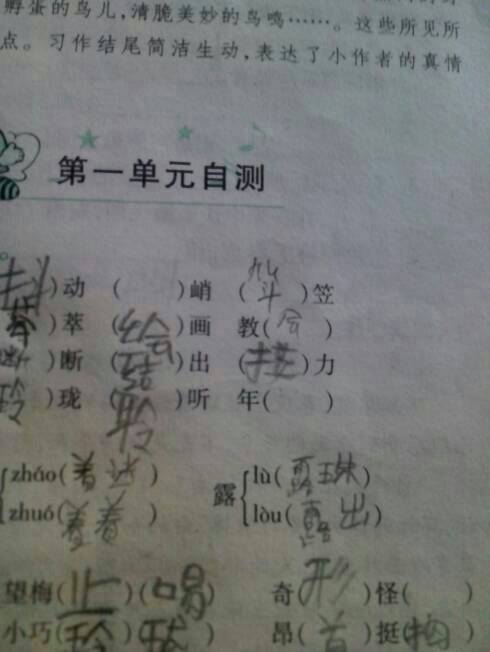 孵蛋的鸟儿,清脆美妙的鸟鸣……。这些所见所
点。习作结尾简洁生动,表达了小作者的真情
第一单元自测
)动 ( )峭 ( )笠
)萃 (绘)画 教(会)
)断 ( )出 (接)力
玲)珑 (聆)听 年( )
zháo(着迷)
zhuó( 着)
露 lù(露珠)
lòu(露出)
望梅(止)(喝) 奇(形)怪( )
小巧(玲)( ) 昂(首)挺( )